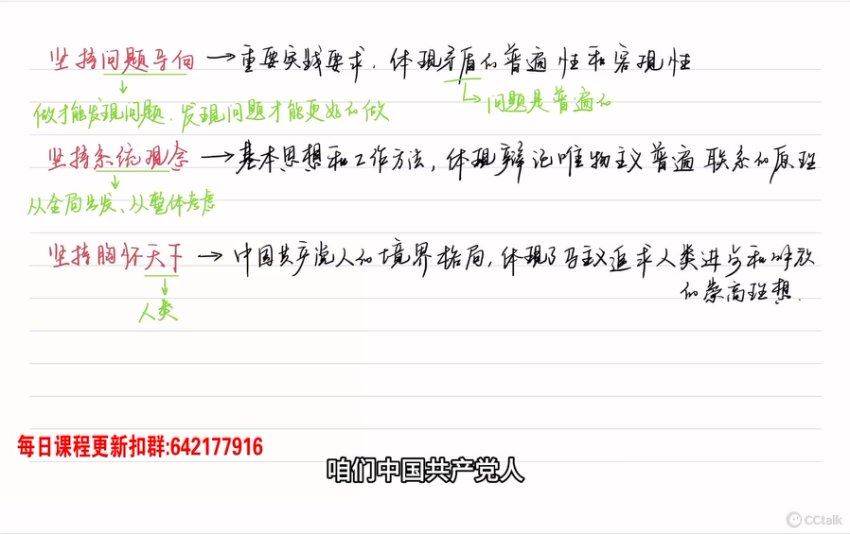 坚持问题导向 → 重要实践要求，体现矛盾的普遍性和客观性
做才能发现问题，发现问题才能更好的做
问题是普遍的
坚持系统观念 → 基本思想和工作方法，体现辩证唯物主义普遍联系的原理
从全局出发、从整体考虑
坚持胸怀天下 → 中国共产党人的境界格局，体现了马主义追求人类进步和解放
的崇高理想.
人类
每日课程更新扣群:642177916
咱们中国共产党人
CCtalk